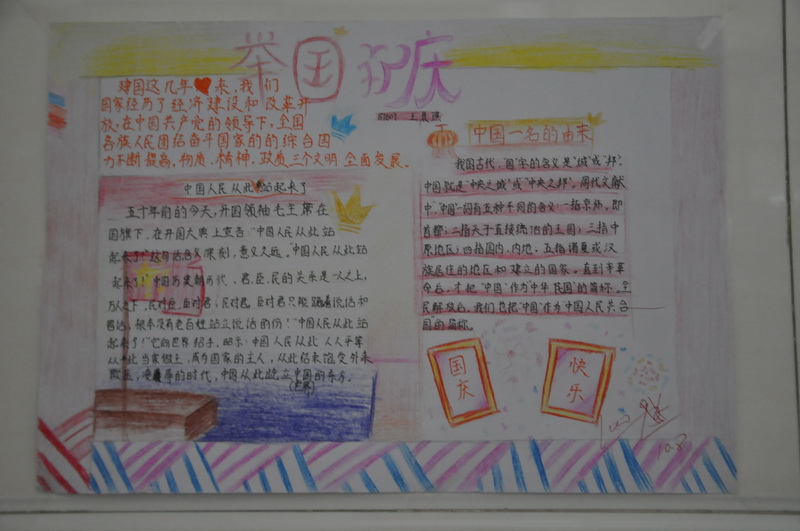 举国欢庆
建国这几年来,我们
国家经历了经济建设和改革开
放,在中国共产党的领导下,全国
各族人民团结奋斗国家的的综合国
力不断提高,物质、精神、政质三个文明全面发展。
中国人民从此站起来了
五十年前的今天,开国领袖毛主席在
国旗下,在开国大典上宣告"中国人民从此站
起来了!"这句话含义深刻,意义久远。"中国人民从此站
起来了!"中国历史朝历代,君、臣、民的关系是一人之上,
万人之下,民对臣,臣对君,民对君,臣对君只能跪着说话和
君话,根本没有老百姓站立说话的份!"中国人民从此站
起来了!"它向世界招手,昭示:中国人民从此人人平等
从此当家做主,成为国家的主人,从此结束饱受外来
欺压,的时代,中国从此屹立中国的东方。
(世界)
中国一名的由来
我国古代,"国"字的含义是"城"或"邦"。
"中国"就是"中央之城"或"中央之邦"。周代文献
中"中国"一词有五种不同的含义:一指京师,即
首都;二指天子直接统治的王国;三指中
原地区;四指国内、内地;五指诸夏或汉
族居住的地区和建立的国家。直到辛革
命后,才把"中国"作为"中华民国"的简称,全
民解放后,我们也把"中国"作为"中国人民共合
国"的简称。
国庆
快乐
10.8